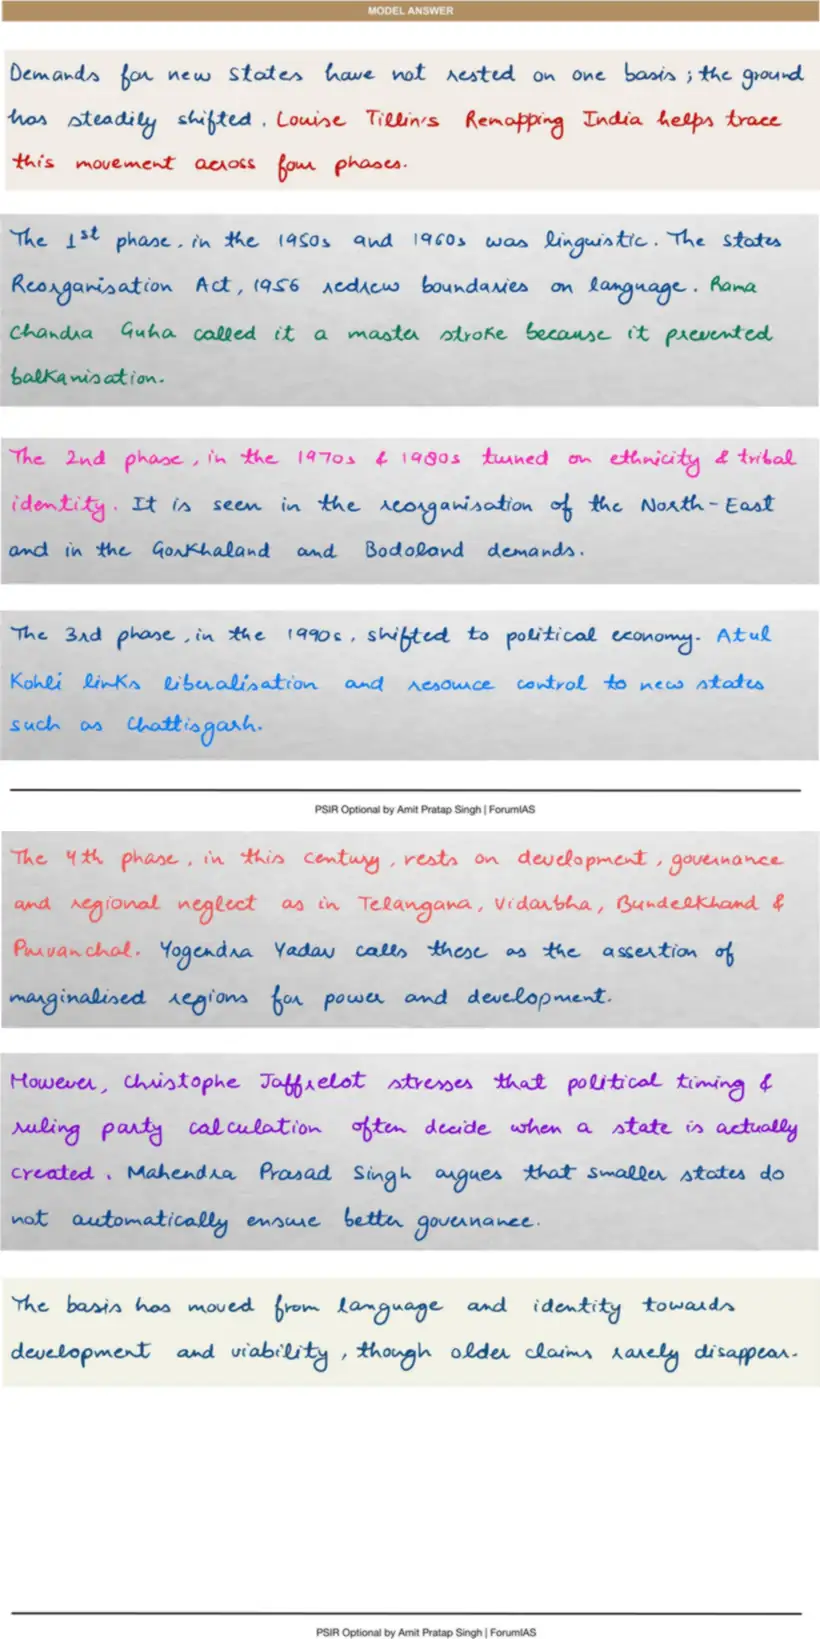 MODEL ANSWER
Demands for new states have not rested on one basis ; the ground
has steadily shifted. Louise Tillin's Remapping India helps trace
this movement across four phases.
The 1st phase, in the 1950s and 1960s was linguistic. The States
Reorganisation Act, 1956 redrew boundaries on language. Rama
Chandra Guha called it a master stroke because it prevented
balkanisation.
The 2nd phase, in the 1970s & 1980s turned on ethnicity & tribal
identity. It is seen in the reorganisation of the North-East
and in the Gorkhaland and Bodoland demands.
The 3rd phase, in the 1990s, shifted to political economy. Atul
Kohli links liberalisation and resource control to new states
such as Chattisgarh.
PSIR Optional by Amit Pratap Singh | ForumIAS
The 4th phase, in this century, rests on development, governance
and regional neglect as in Telangana, Vidarbha, Bundelkhand &
Purvanchal. Yogendra Yadav calls these as the assertion of
marginalised regions for power and development.
However, Christophe Jaffrelot stresses that political timing &
ruling party calculation often decide when a state is actually
created. Mahendra Prasad Singh argues that smaller states do
not automatically ensure better governance.
The basis has moved from language and identity towards
development and viability, though older claims rarely disappear.
PSIR Optional by Amit Pratap Singh | ForumIAS